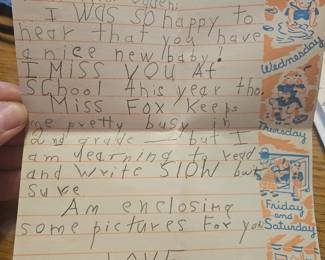 I WAS so happy to
hear that you have
a nice new baby!
I MISS YOU At
School this year tho.
Miss Fox keeps
me pretty busy in
2nd grade — but I
am learning to read
and write SLOW but
sure
Am enclosing
some pictures For you
LOVE
Wednesday
Thursday
Friday
and
Saturday